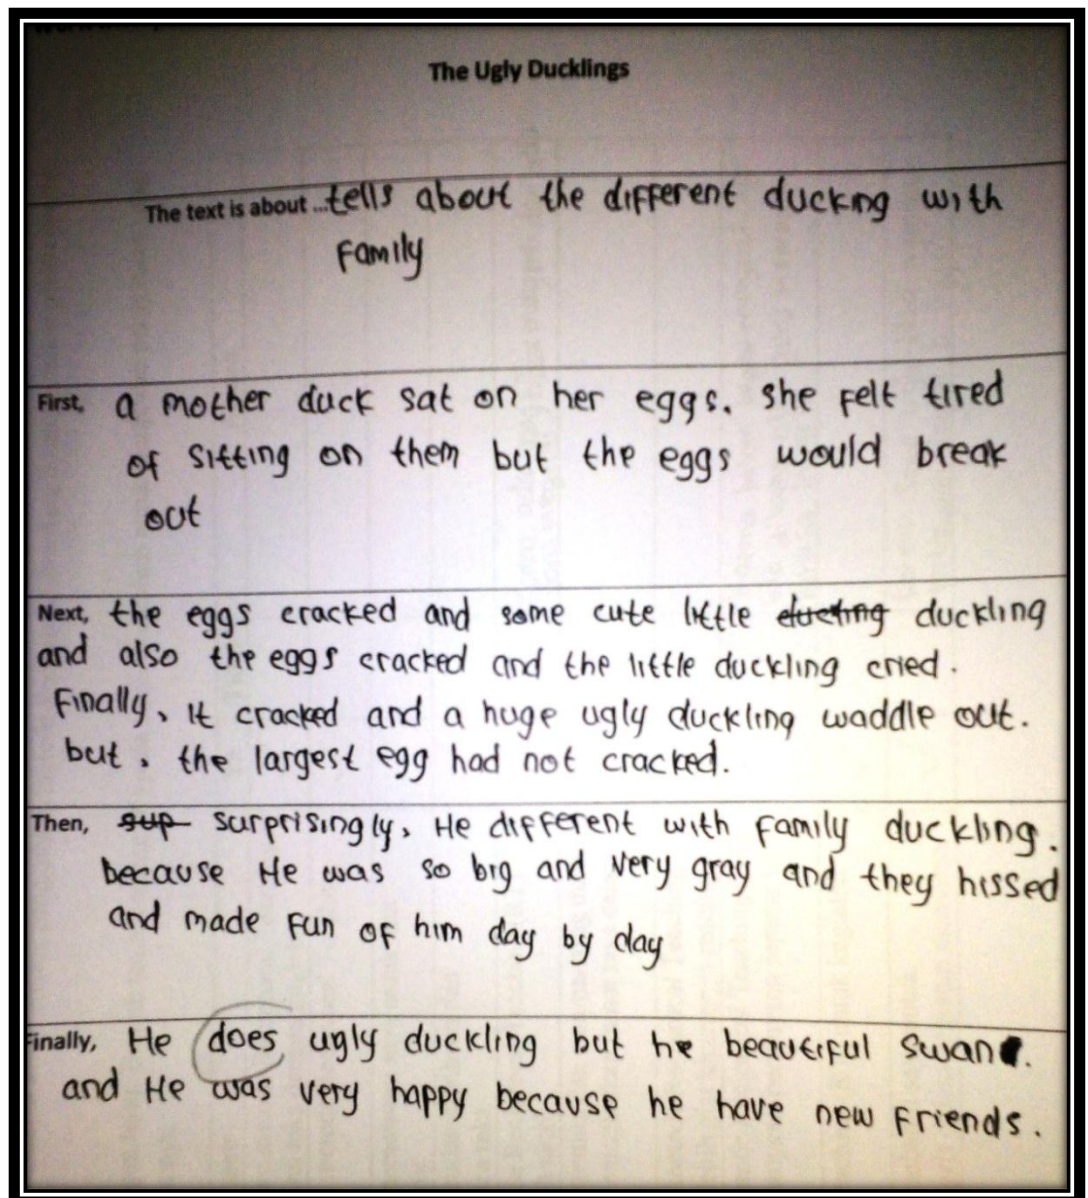 The Ugly Ducklings
The text is about ...tells about the different ducking with
family
First, a mother duck sat on her eggs. she felt tired
of sitting on them but the eggs would break
out
Next, the eggs cracked and some cute little ducting duckling
and also the eggs cracked and the little duckling cried.
Finally, it cracked and a huge ugly duckling waddle out.
but, the largest egg had not cracked.
Then, sup surprisingly, He different with family duckling.
because He was so big and very gray and they hissed
and made fun of him day by day
Finally, He does ugly duckling but he beautiful swan.
and He was very happy because he have new friends.